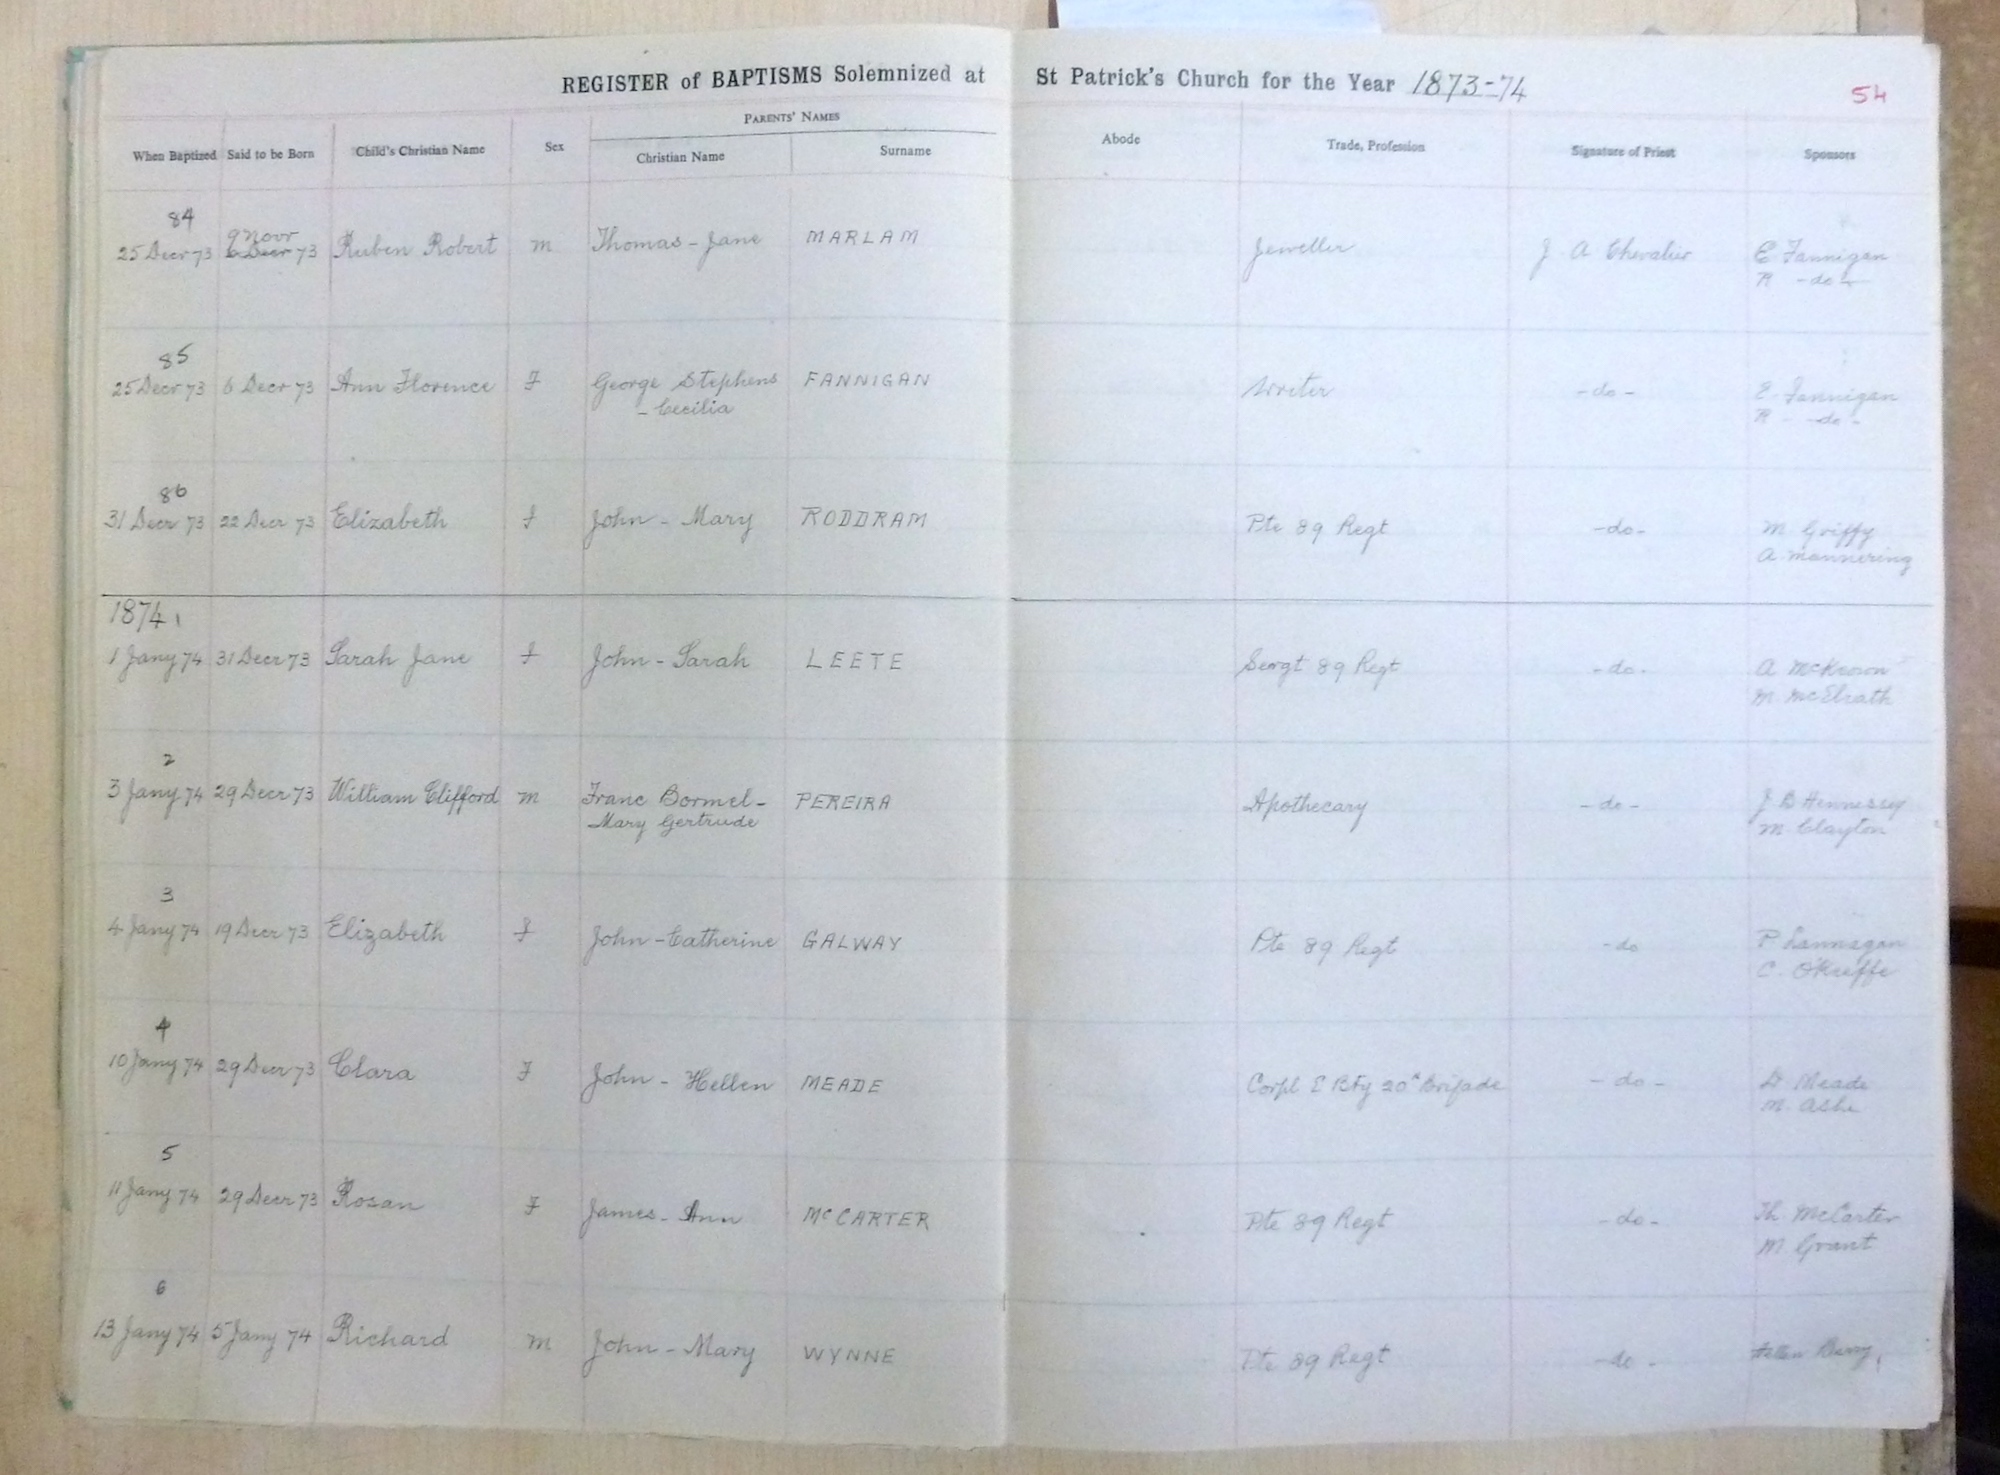 REGISTER of BAPTISMS Solemnized at St Patrick's Church for the Year 1873-74
54
PARENTS' NAMES
When Baptized Said to be Born Child's Christian Name Sex Christian Name Surname Abode Trade, Profession Signature of Priest Sponsors
84
9 Novr
25 Decr 73 6 Decr 73 Ruben Robert m Thomas - Jane MARLAM Jeweller J A Chevalier E Fannigan
R -do-
85
25 Decr 73 6 Decr 73 Ann Florence F George Stephens FANNIGAN Writer -do- E Fannigan
- Cecilia R - -do-
86
31 Decr 73 22 Decr 73 Elizabeth f John - Mary RODDRAM Pte 89 Regt -do- M. Griffy
A. Mannering
1874 1
1 Jany 74 31 Decr 73 Sarah Jane f John - Sarah LEETE Sergt 89 Regt -do- A McKeown
M. McElrath
2
3 Jany 74 29 Decr 73 William Clifford m Franc Bormel - PEREIRA Apothecary -do- J B Hennessy
Mary Gertrude M. Clayton
3
4 Jany 74 19 Decr 73 Elizabeth f John - Catherine GALWAY Pte 89 Regt -do P Lannagan
C. O'Kieffe
4
10 Jany 74 29 Decr 73 Clara F John - Hellen MEADE Corpl E Bty 20th Brigade -do- D Meade
M. Ashe
5
11 Jany 74 29 Decr 73 Rosan F James - Ann McCARTER Pte 89 Regt -do- Th. McCarter
M. Grant
6
13 Jany 74 5 Jany 74 Richard m John - Mary WYNNE Pte 89 Regt -do- Hellen